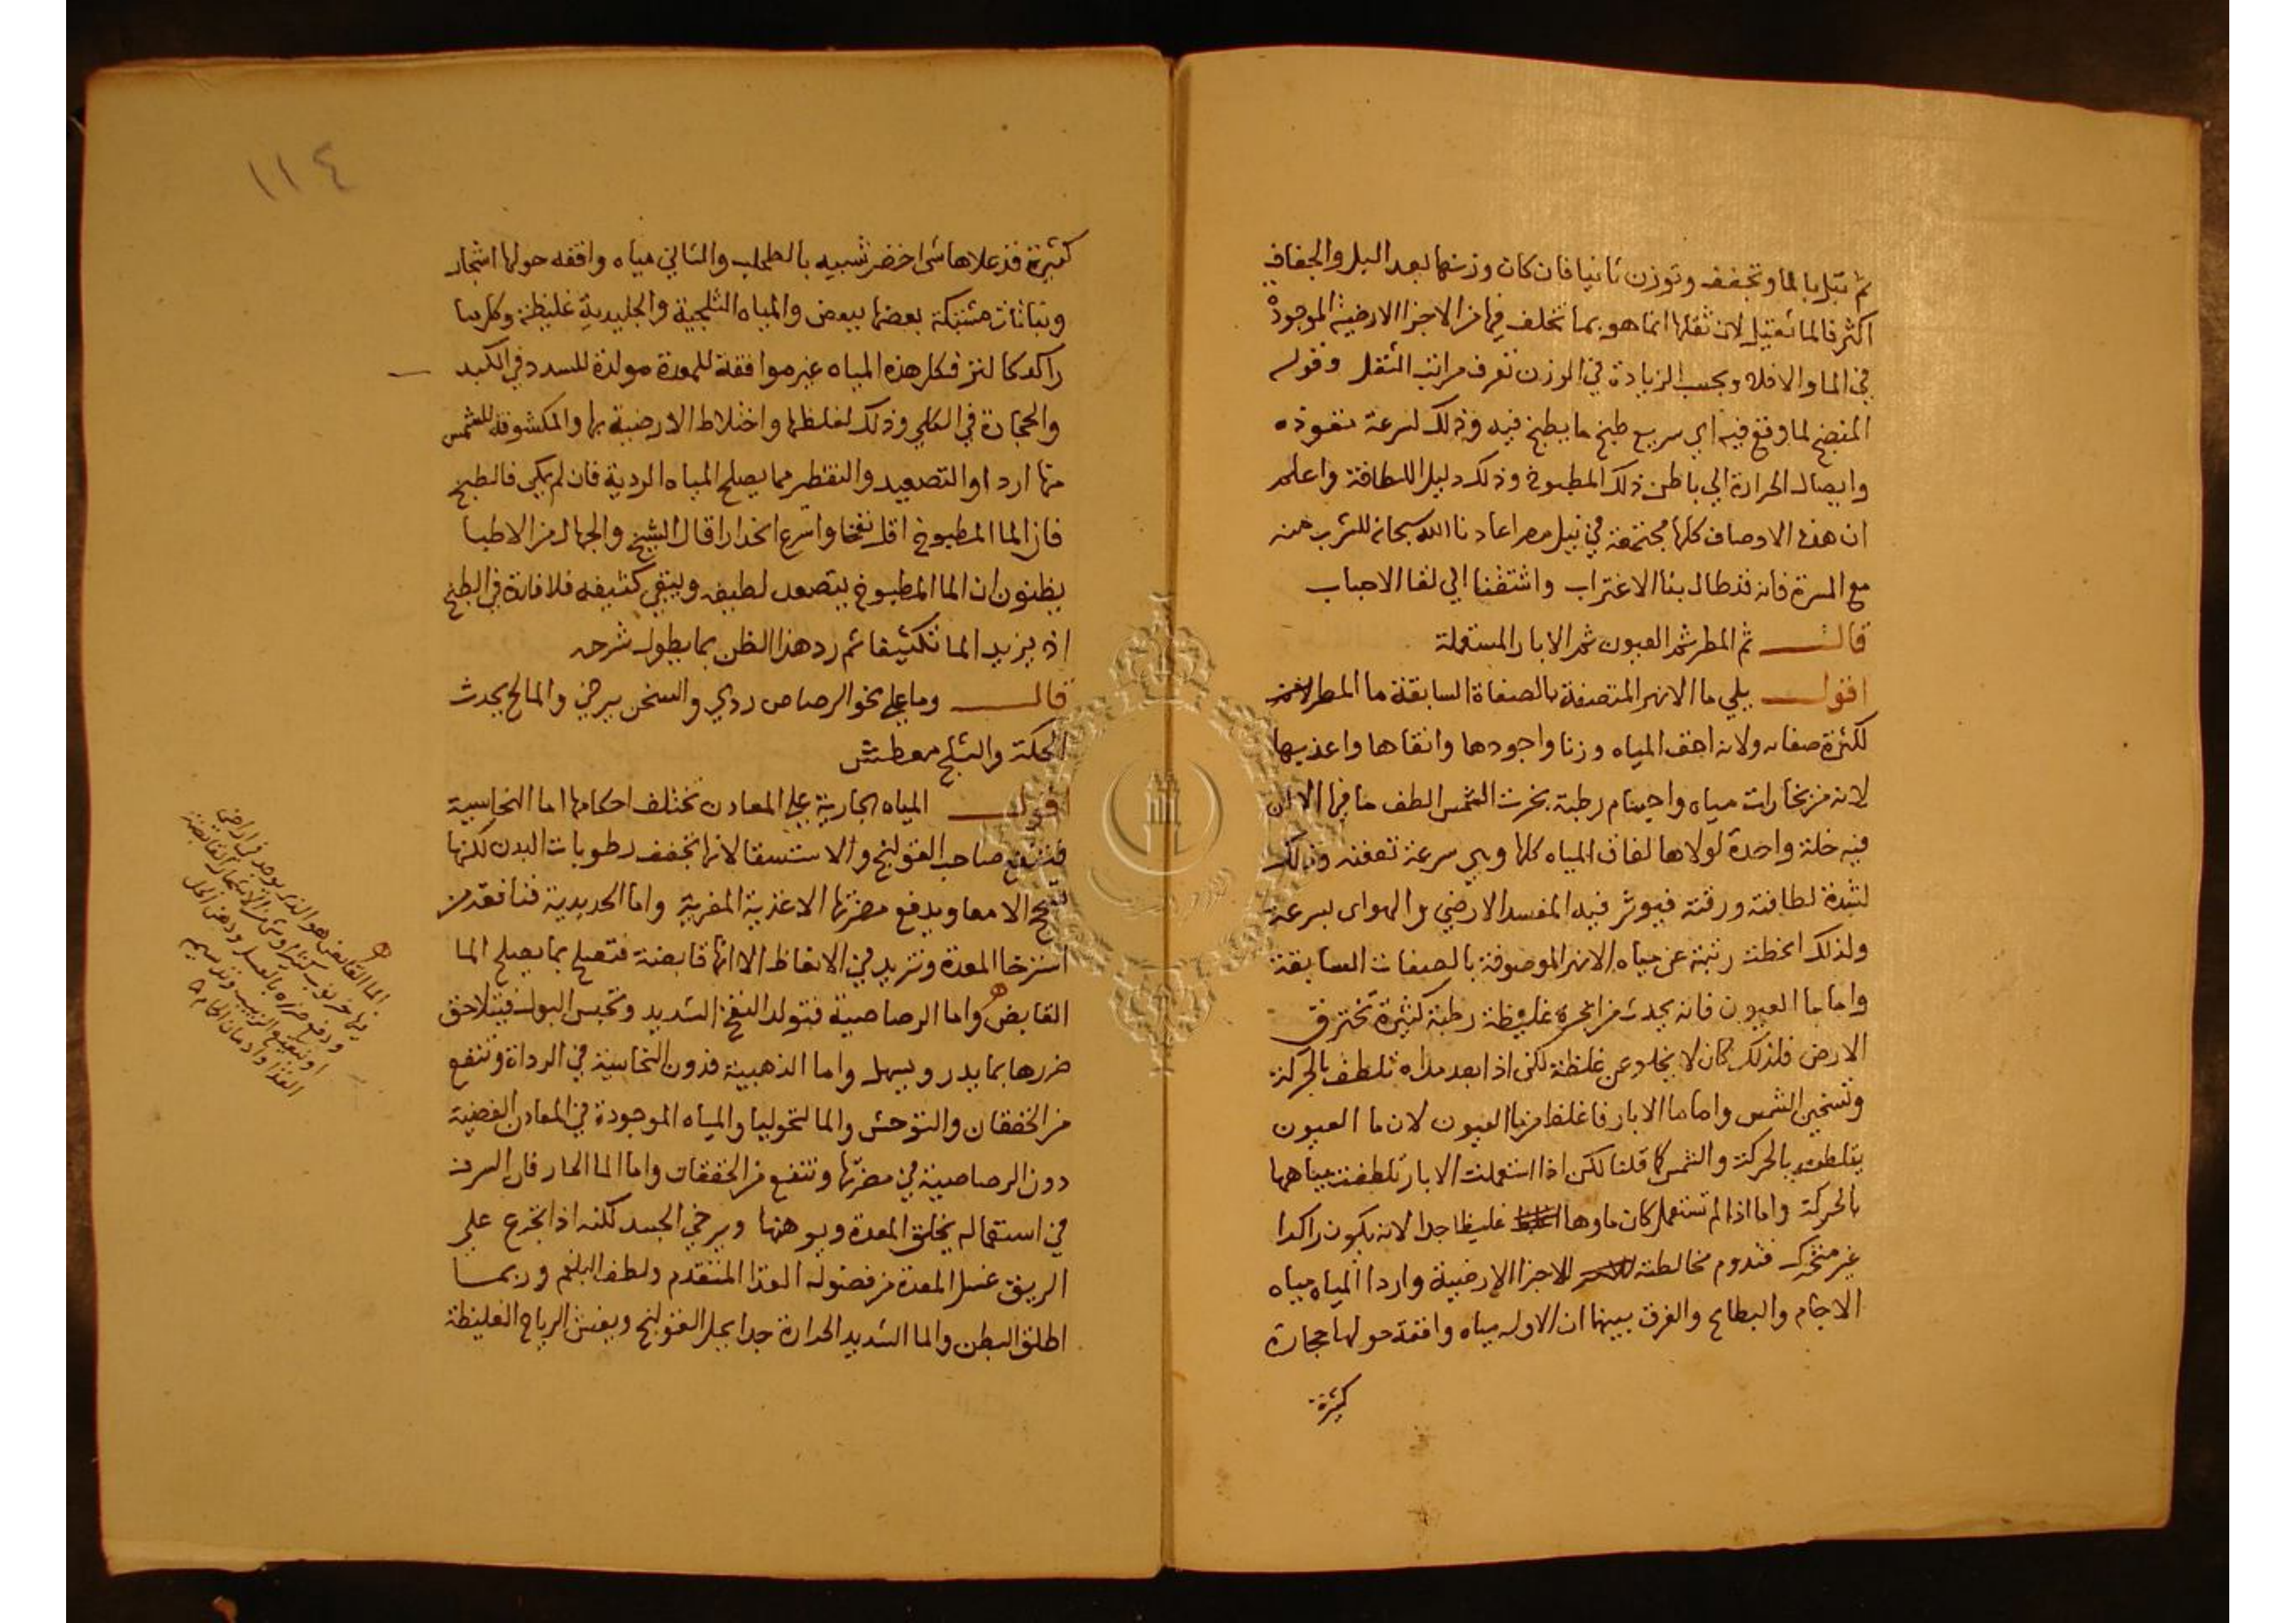 ثم تبل بالما وتجفف وتوزن ثانيا فان كان وزنها بعد البل والجفاف
اكثر فالما ثقيل لان ثقلها انما هو بما تخلف فيها من الاجزا الارضية الموجودة
في الما والا فلا وبحسب الزيادة في الوزن تعرف مراتب الثقل وقوله
المنضج لما وقع فيه اي سريع طبخ ما يطبخ فيه وذلك لسرعة نفوذه
وايصال الحرارة الي باطن ذلك المطبوخ وذلك دليل اللطافة واعلم
ان هذه الاوصاف كلها مجتمعة في نيل مصر اعادنا الله سبحانه للشرب منه
مع المسرة فانه قد طال بنا الاغتراب واشتقنا الي لقا الاحباب
قال ثم المطر ثم العيون ثم الابار المستعملة
اقول يلي ما الانهر المتصفة بالصفاة السابقة ما المطر
لكثرة صفاته ولانه اخف المياه وزنا واجودها وانقاها واعذبها
لانه من بخارات مياه واجسام رطبة بخرت الشمس الطف ما فيها الا ان
فيه خلة واحدة لولاها لفاق المياه كلها وهي سرعة تعفنه وذلك
لشدة لطافته ورقته فيوثر فيه المفسد الارضي والهواى بسرعة
ولذلك انحطت رتبته عن مياه الانهر الموصوفة بالصفات السابقة
واما ما العيون فانه يحدث من ابخرة غليظة رطبة كثيرة تخترق
الارض فلذلك كان لا يخلو عن غلظة لكن اذا بعد مداه تلطف بالحركة
وتسخين الشمس واما ما الابار فاغلظ من ما العيون لان ما العيون
يتلطف بالحركة والشمس كما قلنا لكن اذا استعملت الابار تلطفت مياهها
بالحركة واما اذا لم تستعمل كان ماوها غليظا جدا لانه يكون راكدا
غير متحرك فتدوم مخالطته للاجزا الارضية واردا المياه مياه
الاجام والبطاح والفرق بينهما ان الاول مياه واقفة حولها حجارة
كثيرة
١١٤
كثيرة قد علاها شى اخضر شبيه بالطحلب والثاني مياه واقفه حولها اشجار
ونباتات مشتبكة بعضها ببعض والمياه الثلجية والجليدية غليظة وكل ما
راكد كالنز فكل هذه المياه غير موافقة للمعدة مولدة للسدد في الكبد
والحجارة في الكلي وذلك لغلظها واختلاط الارضية بها والمكشوفة للشمس
منها اردا والتصعيد والتقطير مما يصلح المياه الردية فان لم يكن فالطبخ
فان الما المطبوخ اقل نفخا واسرع انحدارا قال الشيخ والجهال من الاطبا
يظنون ان الما المطبوخ يتصعد لطيفه ويبقي كثيفه فلا فائدة في الطبخ
اذ يزيد الما تكثيفا ثم رد هذا الظن بما يطول شرحه
قال وما علي نحو الرصاص ردي والسخن يرخي والمالح يحدث
الحكة والثلج معطش
اقول المياه الجارية علي المعادن تختلف احكامها اما النحاسية
فتنفع صاحب القولنج والاستسقا لانها تجفف رطوبات البدن لكنها
تسحج الامعا ويدفع مضرتها الاغذية المغرية واما الحديدية فنافعة من
استرخا المعدة وتزيد في الانعاظ الا انها قابضة فتصلح بما يصلح الما
القابض واما الرصاصية فتولد النفخ الشديد وتحبس البول فيتلاحق
ضررها بما يدر ويسهل واما الذهبية فدون النحاسية في الرداة وتنفع
من الخفقان والتوحش والمالنخوليا والمياه الموجودة في المعادن الفضية
دون الرصاصية في مضرتها وتنفع من الخفقان واما الما الحار فان السرف
في استعماله يخلق المعدة ويوهنها ويرخي الجسد لكنه اذا تجرع علي
الريق غسل المعدة من فضوله الغذا المتقدم ولطف البلغم وربما
اطلق البطن والما الشديد الحرارة جدا يحل القولنج ويفش الرياح الغليظة
الما القابض هو الذي يوجد في اراضي
ودفع ضرره بالعسل ودهن الخل